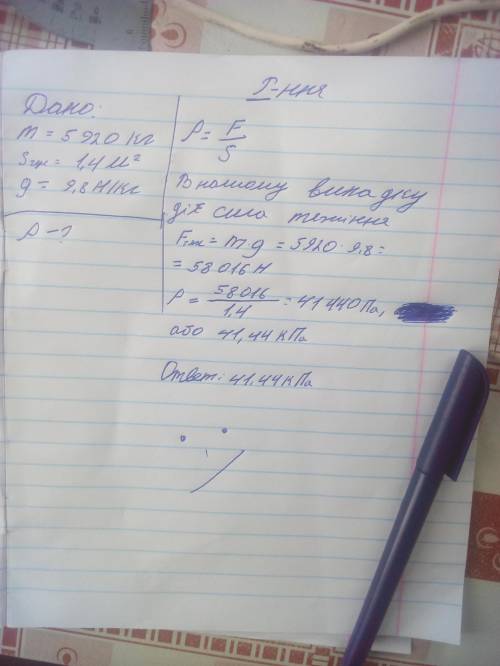 Р-ння
Дано:
m = 5920 кг
Sгус = 1,4 м²
g = 9,8 Н/кг
p - ?
p = F/S
В нашому випадку
діє сила тяжіння
Fтяж = m·g = 5920·9,8 =
= 58016 Н
p = 58016/1,4 = 41440 Па,
або 41,44 кПа
Ответ: 41,44 кПа